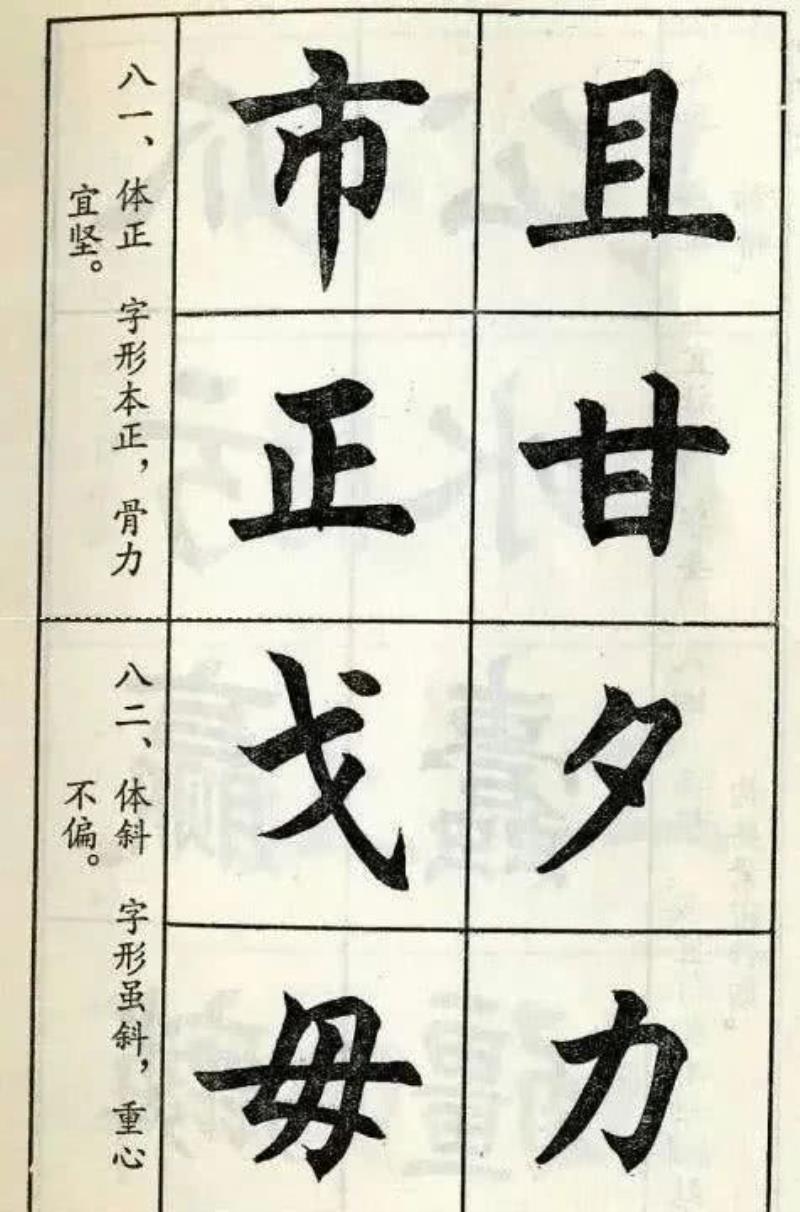 且
甘
市
正
八一、体正　字形本正，骨力
宜坚。
夕
力
戈
毋
八二、体斜　字形虽斜，重心
不偏。